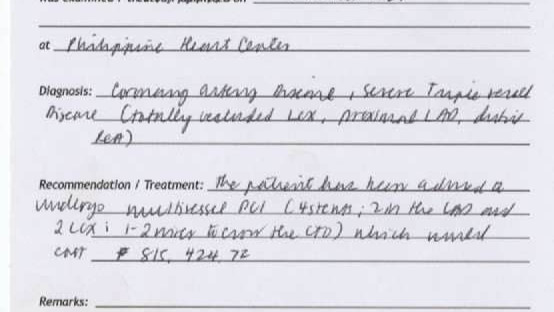 at Philippine Heart Center
Diagnosis: Coronary artery Disease, Severe Triple vessel
Disease (totally occluded LCx, proximal LAD, distal
RCA)
Recommendation / Treatment: The patient has been advised to
undergo multivessel PCI (4 stents; 2 in the LAD and
2 LCx; 1-2 to cross the CTO) which would
cost ₱ 815, 424.72
Remarks: